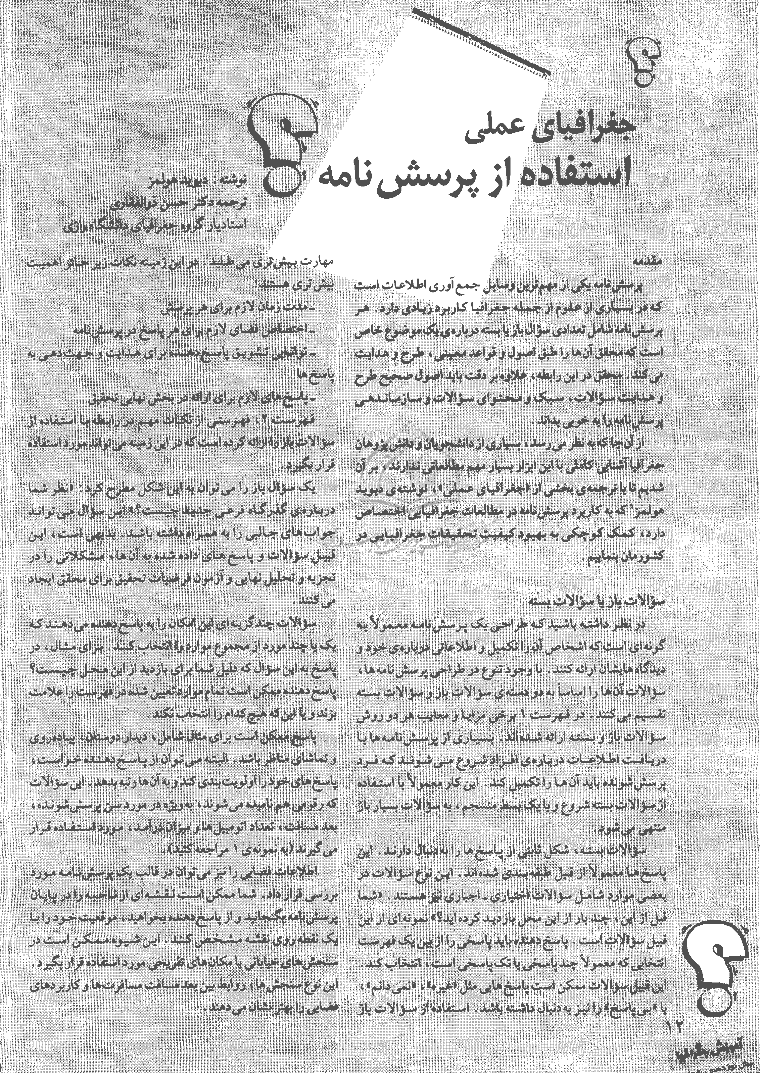 جغرافیای عملی
استفاده از پرسش نامه
نوشته: دیوید هولمز
ترجمه دکتر حسن ذوالفقاری
استادیار گروه جغرافیای دانشگاه رازی
مقدمه
پرسش‌نامه یکی از مهم‌ترین وسایل جمع آوری اطلاعات است
که در بسیاری از علوم از جمله جغرافیا کاربرد زیادی دارد. هر
پرسش‌نامه شامل تعدادی سؤال باز یا بسته درباره‌ی یک موضوع خاص
است که محقق آن‌ها را طبق اصول و قواعد معینی، طرح و هدایت
می‌کند. محقق در این رابطه، علاوه بر دقت باید اصول صحیح طرح
و هدایت سؤالات، سبک و محتوای سؤالات و سازماندهی
پرسش‌نامه را به خوبی بداند.
از آن جا که به نظر می‌رسد، بسیاری از دانشجویان و دانش پژوهان
جغرافیا آشنایی کاملی با این ابزار بسیار مهم مطالعاتی ندارند، بر آن
شدیم تا با ترجمه‌ی بخشی از «جغرافیای عملی»، نوشته‌ی دیوید
هولمز که به کاربرد پرسش‌نامه در مطالعات جغرافیایی اختصاص
دارد، کمک کوچکی به بهبود کیفیت تحقیقات جغرافیایی در
کشورمان بنماییم.
سؤالات باز یا سؤالات بسته
در نظر داشته باشید که طراحی یک پرسش‌نامه معمولاً به
گونه‌ای است که اشخاص آن را تکمیل و اطلاعاتی درباره‌ی خود و
دیدگاه‌هایشان ارائه کنند. با وجود تنوع در طراحی پرسش‌نامه‌ها،
سؤالات آن‌ها را اساساً به دو دسته‌ی سؤالات باز و سؤالات بسته
تقسیم می‌کنند. در فهرست ۱ برخی مزایا و معایب هر دو روش
سؤالات باز و بسته ارائه شده‌اند. بسیاری از پرسش‌نامه‌ها با
دریافت اطلاعات درباره‌ی افراد شروع می‌شوند که فرد
پرسش شونده باید آن‌ها را تکمیل کند. این کار معمولاً با استفاده
از سؤالات بسته شروع و با یک بسط منسجم، به سؤالات بسیار باز
منتهی می‌شود.
سؤالات بسته، شکل ثابتی از پاسخ‌ها را به دنبال دارند. این
پاسخ‌ها معمولاً از قبل طبقه بندی شده‌اند. این نوع سؤالات در
بعضی موارد شامل سؤالات اختیاری ـ اجباری نیز هستند. «شما
قبل از این، چند بار از این محل بازدید کرده اید؟» نمونه‌ای از این
قبیل سؤالات است. پاسخ دهنده باید پاسخی را از بین یک فهرست
انتخابی که معمولاً چند پاسخی یا تک پاسخی است، انتخاب کند.
این قبیل سؤالات ممکن است پاسخ‌هایی مثل «غیره»، «نمی دانم»،
یا «بی پاسخ» را نیز به دنبال داشته باشد. استفاده از سؤالات باز
مهارت بیش‌تری می‌طلبد. در این زمینه نکات زیر حائز اهمیت
بیش‌تری هستند:
ـ مدت زمان لازم برای هر پرسش
ـ اختصاص فضای لازم برای هر پاسخ در پرسش‌نامه
ـ توانایی تشویق پاسخ‌دهنده برای هدایت و جهت دهی به
پاسخ‌ها
ـ پاسخ‌های لازم برای ارائه در بخش نهایی تحقیق
فهرست ۲، فهرستی از نکات مهم در رابطه با استفاده از
سؤالات باز را ارائه کرده است که در این زمینه می‌تواند مورد استفاده
قرار بگیرد.
یک سؤال باز را می‌توان به این شکل مطرح کرد: «نظر شما
درباره‌ی گذرگاه فرعی جدید چیست؟» این سؤال می‌تواند
جواب‌های جالبی را به همراه داشته باشد. بدیهی است، این
قبیل سؤالات و پاسخ‌های داده شده به آن‌ها، مشکلاتی را در
تجزیه و تحلیل نهایی و آزمون فرضیات تحقیق برای محقق ایجاد
می‌کنند.
سؤالات چند گزینه‌ای این امکان را به پاسخ دهنده می‌دهند که
یک یا چند مورد از مجموع موارد را انتخاب کنند. برای مثال، در
پاسخ به این سؤال که دلیل شما برای بازدید از این محل چیست؟
پاسخ دهنده ممکن است تمام موارد تعیین شده در فهرست را علامت
بزند و یا این که هیچ کدام را انتخاب نکند.
پاسخ ممکن است برای مثال شامل، دیدار دوستان، پیاده‌روی
و تماشای مناظر باشد. البته می‌توان از پاسخ دهنده خواست،
پاسخ‌های خود را اولویت بندی کند و به آن‌ها رتبه بدهد. این سؤالات
که رقومی هم نامیده می‌شوند، به ویژه در مورد سن پرسش شونده،
بعد مسافت، تعداد اتومبیل‌ها و میزان درآمد، مورد استفاده قرار
می‌گیرند (به نمونه‌ی ۱ مراجعه کنید).
اطلاعات فضایی را نیز می‌توان در قالب یک پرسش‌نامه مورد
بررسی قرار داد. شما ممکن است نقشه‌ای از ناحیه را در پایان
پرسش‌نامه بگنجانید و از پاسخ دهنده بخواهید، موقعیت خود را با
یک نقطه روی نقشه مشخص کند. این شیوه ممکن است در
سنجش‌های خیابانی یا مکان‌های تفریحی مورد استفاده قرار بگیرد.
این نوع سنجش‌ها، روابط بین بعد مسافت مسافرت‌ها و کاربردهای
فضایی را بهتر نشان می‌دهند.
۱۲
آموزش جغرافیا